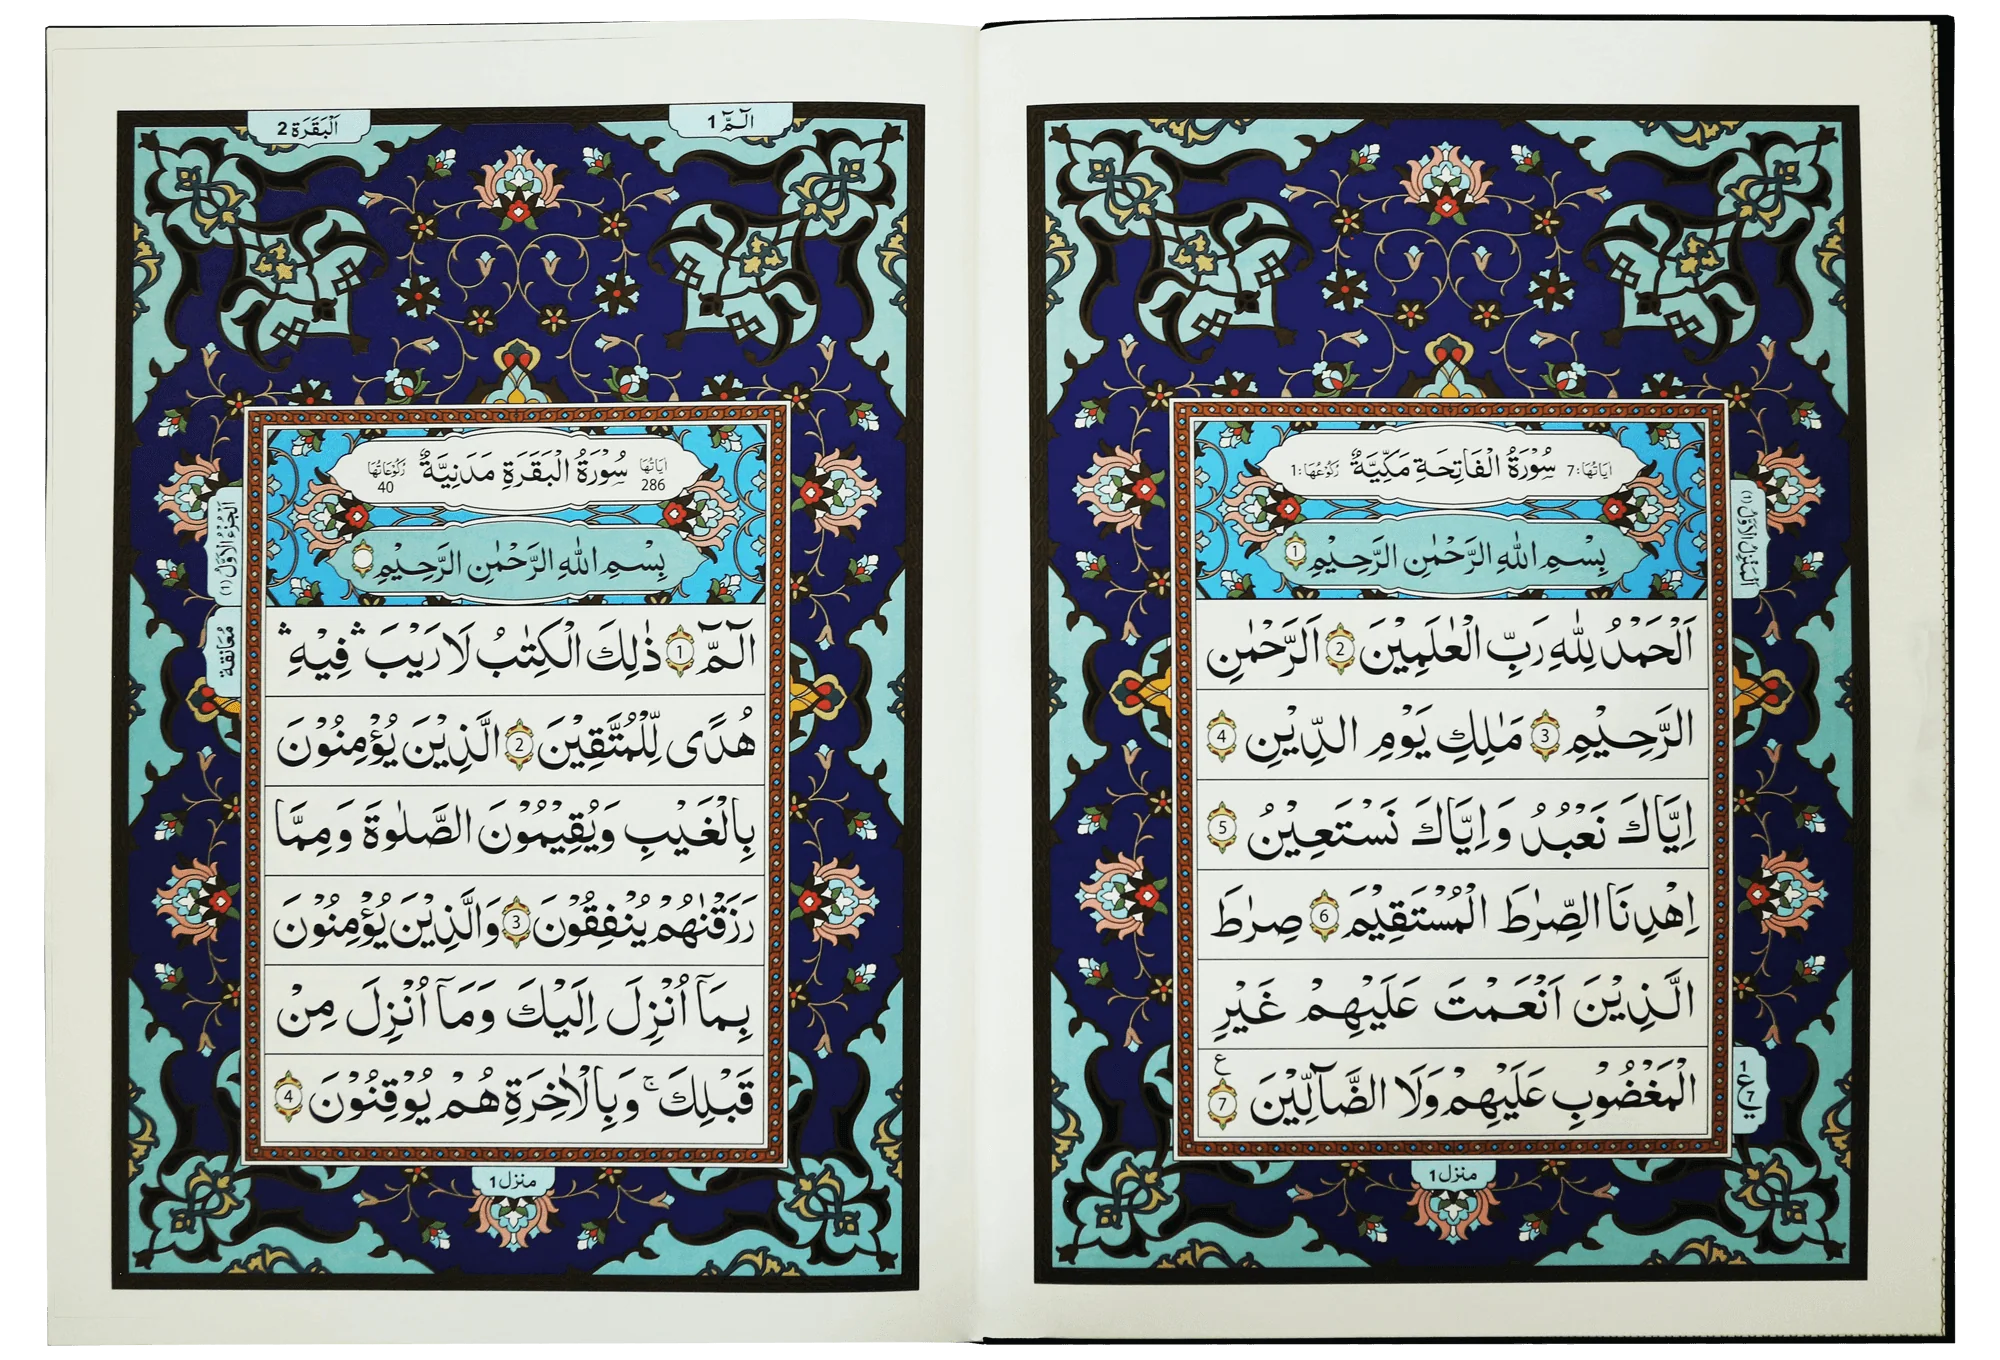 سُوْرَةُ الْفَاتِحَةِ مَكِّيَّةٌ
اٰيَاتُهَا: 7
رُكُوْعُهَا: 1
بِسْمِ اللهِ الرَّحْمٰنِ الرَّحِيْمِ 1
اَلْحَمْدُ لِلّٰهِ رَبِّ الْعٰلَمِيْنَ 2 اَلرَّحْمٰنِ
الرَّحِيْمِ 3 مٰلِكِ يَوْمِ الدِّيْنِ 4
اِيَّاكَ نَعْبُدُ وَاِيَّاكَ نَسْتَعِيْنُ 5
اِهْدِنَا الصِّرٰطَ الْمُسْتَقِيْمَ 6 صِرٰطَ
الَّذِيْنَ اَنْعَمْتَ عَلَيْهِمْ غَيْرِ
الْمَغْضُوْبِ عَلَيْهِمْ وَلَا الضَّآلِّيْنَ ع 7
اَلْمَنْزِلُ الْاَوَّلُ (١)
1 ع 7
منزل 1
الٓمّٓ 1
اَلْبَقَرَة 2
سُوْرَةُ الْبَقَرَةِ مَدَنِيَّةٌ
اٰيَاتُهَا 286
رُكُوْعَاتُهَا 40
بِسْمِ اللهِ الرَّحْمٰنِ الرَّحِيْمِ
الٓمّٓ 1 ذٰلِكَ الْكِتٰبُ لَا رَيْبَ ۛ فِيْهِ ۛ
هُدًى لِّلْمُتَّقِيْنَ 2 الَّذِيْنَ يُؤْمِنُوْنَ
بِالْغَيْبِ وَيُقِيْمُوْنَ الصَّلٰوةَ وَمِمَّا
رَزَقْنٰهُمْ يُنْفِقُوْنَ 3 وَالَّذِيْنَ يُؤْمِنُوْنَ
بِمَآ اُنْزِلَ اِلَيْكَ وَمَآ اُنْزِلَ مِنْ
قَبْلِكَ ۚ وَبِالْاٰخِرَةِ هُمْ يُوْقِنُوْنَ 4
اَلْجُزْءُ الْاَوَّلُ (١)
مُعَانَقَة
منزل 1